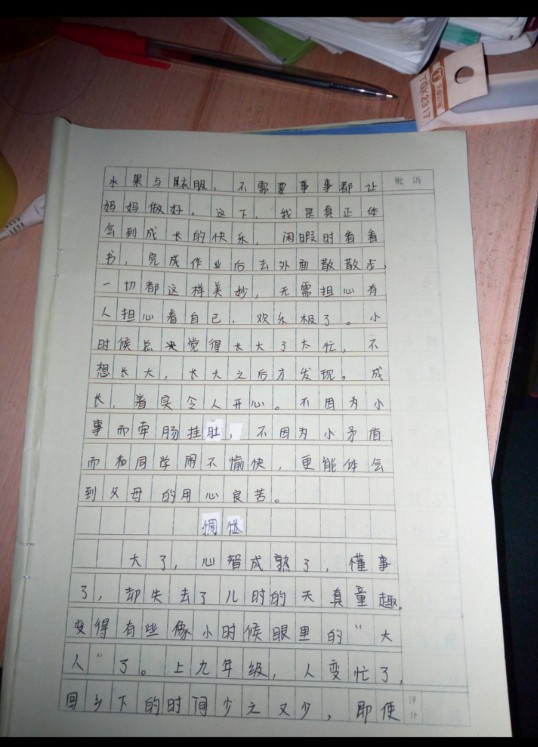 TGX2317
批语
水果与鞋服，不需要事事都让
妈妈做好，这下，我是真正体
会到成长的快乐，闲暇时看看
书，完成作业后去外面散散步，
一切都这样美妙，无需担心有
人担心着自己，欢乐极了。小
时候总决觉得长大了太忙，不
想长大，长大之后才发现，成
长，着实令人开心。不因为小
事而牵肠挂肚，不因为小矛盾
而和同学闹不愉快，更能体会
到父母的用心良苦。
惆怅
大了，心智成熟了，懂事
了，却失去了儿时的天真童趣，
变得有些像小时候眼里的“大
人”了。上九年级，人变忙了，
回乡下的时间少之又少，即使